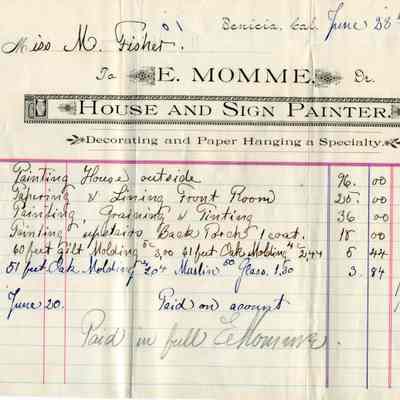 Benicia, Cal. June 28
Miss M. Fisher.
To E. MOMME. Dr.
HOUSE AND SIGN PAINTER.
Decorating and Paper Hanging a Specialty.
Painting House outside 96. 00
Papering & Lining Front Room 25. 00
Painting, Graining & Tinting 36 00
Painting upstairs Back Porch 1 coat. 18 00
60 feet Gilt Molding 5c 3,00 61 feet Oak Molding 4c 2,44 5 44
51 feet Oak Molding 4c 204 Muslin 50 Glass. 1.30 3. 84
June 20. Paid on acount
Paid in full E Momme.